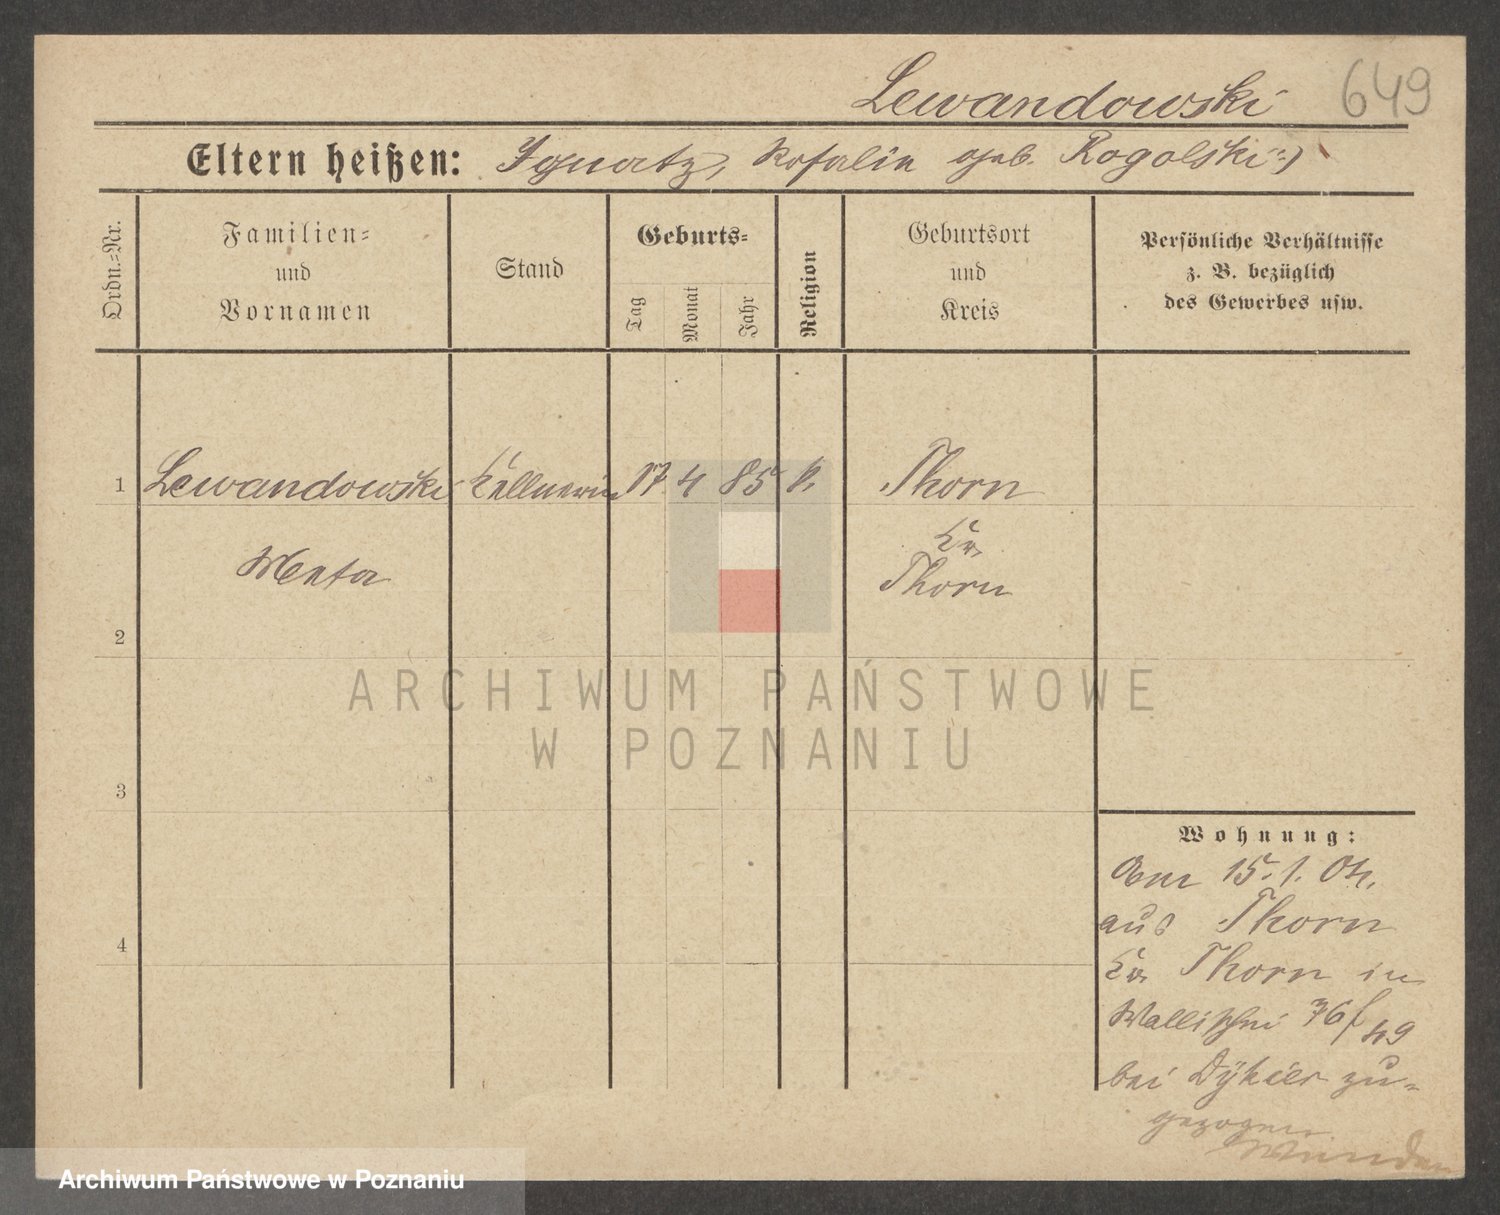 Lewandowski 649
Eltern heißen: Ignatz, Rosalie geb. Rogolski
Ordn.-Nr.
Familien-
und
Vornamen
Stand
Geburts-
Tag
Monat
Jahr
Religion
Geburtsort
und
Kreis
Persönliche Verhältnisse
z. B. bezüglich
des Gewerbes usw.
1 Lewandowski Kellnerin 17 4 85 k. Thorn
Kr.
Thorn
Meta
2
3
4
Wohnung:
Am 15. 1. 04.
aus Thorn
Kr. Thorn in
Wallischei 76/49
bei Dykier zu-
gezogen
ARCHIWUM PAŃSTWOWE
W POZNANIU
Archiwum Państwowe w Poznaniu